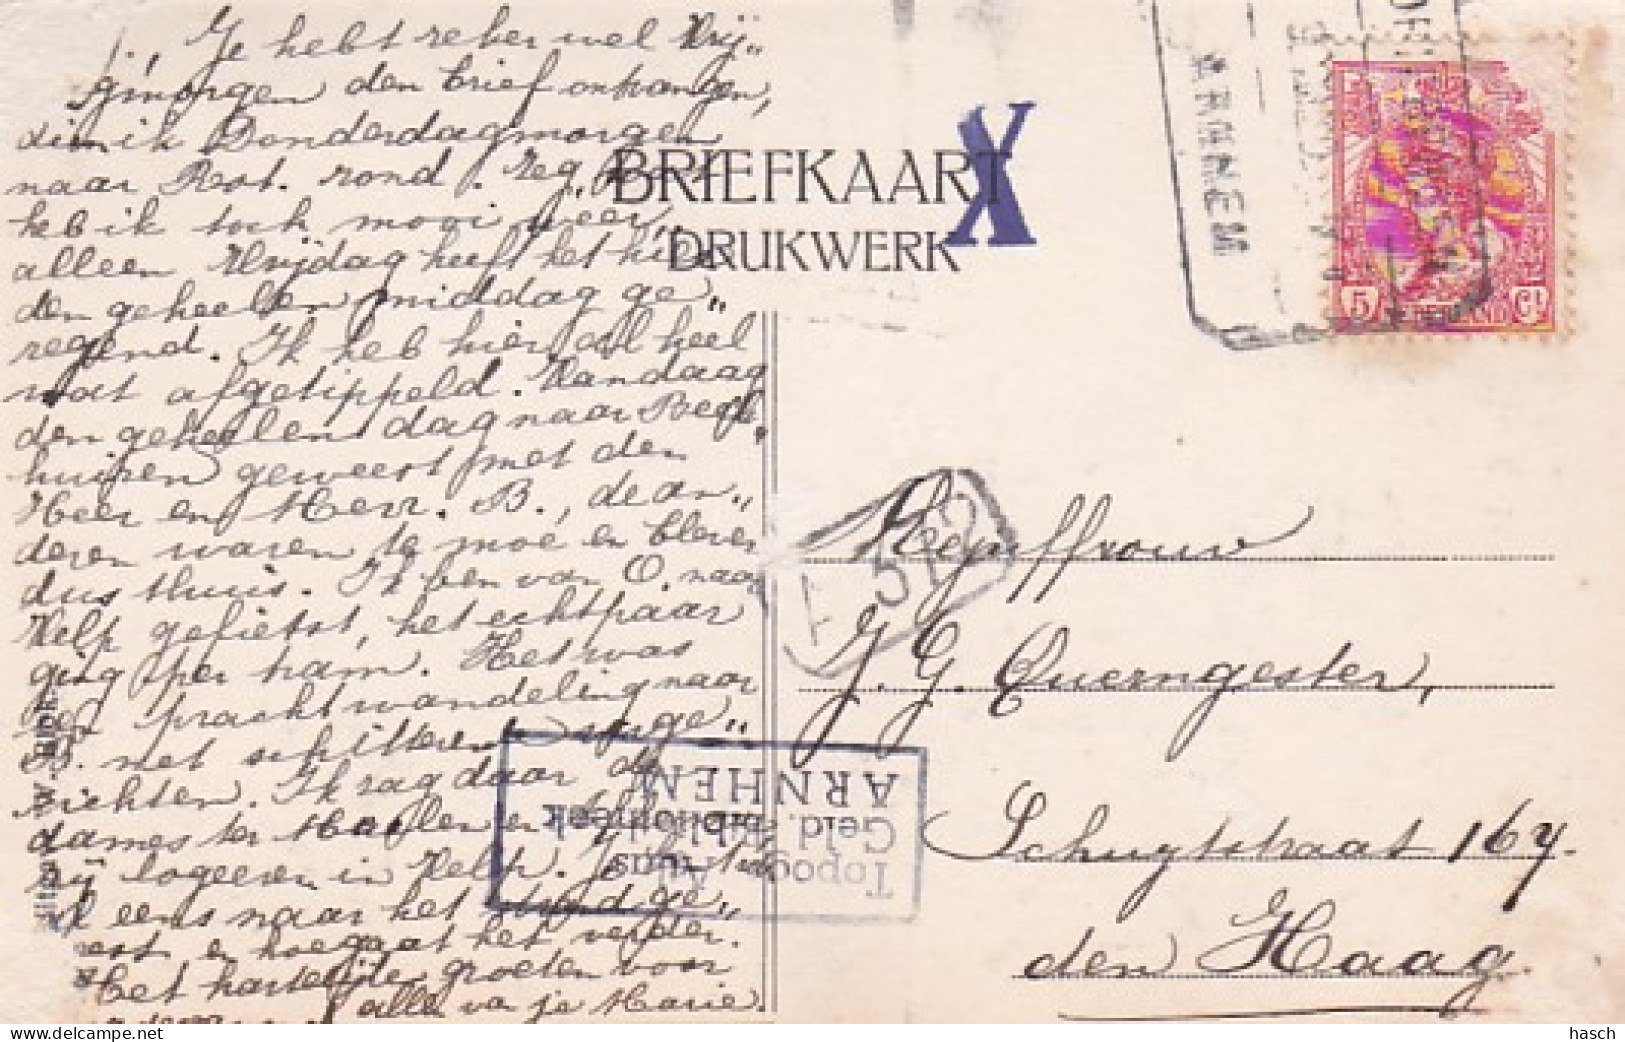 Je hebt zeker wel Vrij„
d.morgen den brief ontvangen,
dien ik Donderdagmorgen
naar Rest. rond
heb ik toch mooi weer,
alleen Vrijdag heeft het hier
den geheelen middag ge„
regend. Ik heb hier al heel
wat afgetippeld. Vandaag
den geheelen dag naar Beek„
huizen geweest met den
Heer en Mevr. B., de an„
deren waren te moe en bleven
dus thuis. Ik ben van O. naar
Velp gefietst, het echtpaar
ging per tram. Het was
een prachtwandeling naar
B. met schitterende verge„
zichten. Ik zag daar de
dames ter Haar
zij logeeren in Velp.
eens naar het strand ge„
weest en hoe gaat het verder.
Met hartelijke groeten voor
alle van je Marie.
BRIEFKAART
DRUKWERK
X
ARNHEM
5
NEDERLAND
Ct
Mejuffrouw
J. G. Querngester,
Schuytstraat 167.
den Haag.
Topogr. Atlas
Geld. Bibliotheek
ARNHEM
hasch